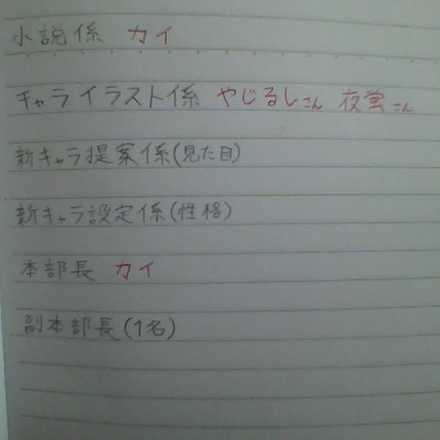 小説係 カイ
キャライラスト係 やじるしさん 夜蛍さん
新キャラ提案係(見た目)
新キャラ設定係(性格)
本部長 カイ
副本部長(1名)